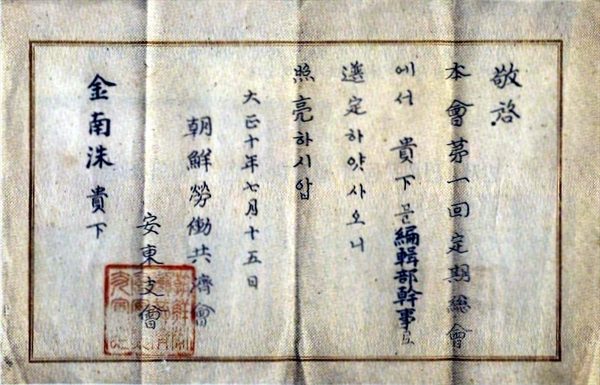 敬啓
本會第一回定期總會
에서 貴下를 編輯部幹事로
選定하얏사오니
照亮하시압
大正十年七月十五日
朝鮮勞働共濟會
安東支會
金南洙 貴下